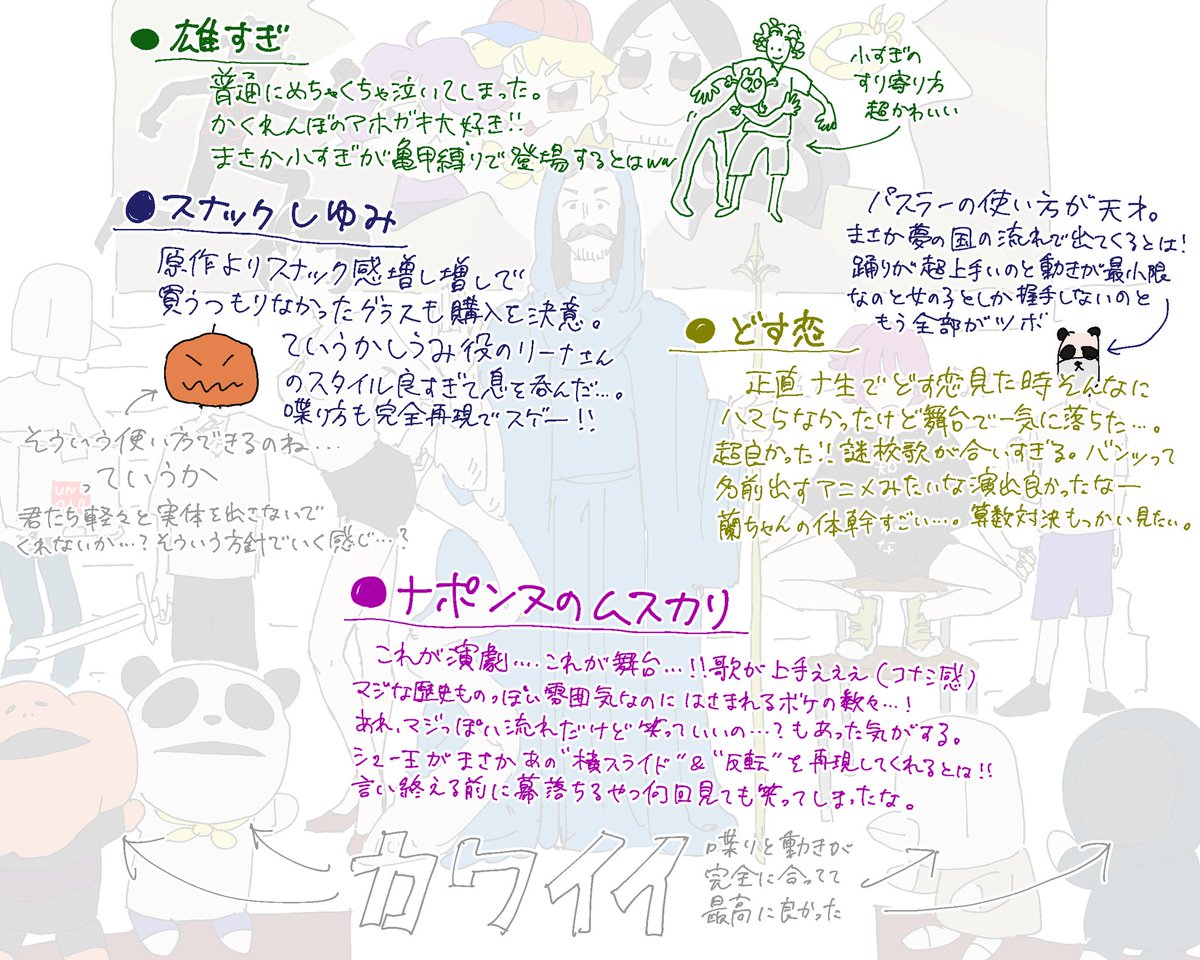 ●雄すぎ
普通にめちゃくちゃ泣いてしまった。
かくれんぼのアホガキ大好き!!
まさか小すぎが亀甲縛りで登場するとはww
小すぎの
すり寄り方
超かわいい
●スナックしゆみ
原作よりスナック感増し増しで
買うつもりなかったグラスも購入を決意。
ていうかしうみ役のリーナさん
のスタイル良すぎて息を呑んだ…。
喋り方も完全再現でスゲー!!
パスラーの使い方が天才。
まさか夢の国の流れで出てくるとは!
踊りが超上手いのと動きが最小限
なのと女の子としか握手しないのと
もう全部がツボ
●どす恋
正直ナ生でどす恋見た時そんなに
ハマらなかったけど舞台で一気に落ちた…。
超良かった!!謎校歌が合いすぎる。バンッって
名前出すアニメみたいな演出良かったなー
蘭ちゃんの体幹すごい…。算数対決もっかい見たい。
そういう使い方できるのね…
っていうか
君たち軽々と実体を出さないで
くれないか…?そういう方針でいく感じ…?
●ナポンヌのムスカリ
これが演劇….これが舞台…!!歌が上手えええ(コナン感)
マジな歴史ものっぽい雰囲気なのにはさまれるボケの数々…!
あれ、マジっぽい流れだけど笑っていいの…?もあった気がする。
シュー王がまさかあの"横スライド"&"反転"を再現してくれるとは!!
言い終える前に幕落ちるやつ何回見ても笑ってしまったな。
カワイイ
喋りと動きが
完全に合ってて
最高に良かった